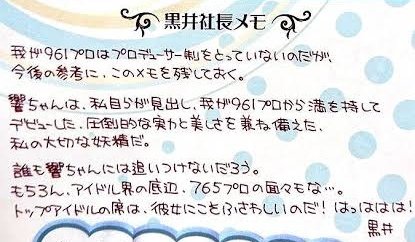 黒井社長メモ
我が961プロはプロデューサー制をとっていないのだが、
今後の参考に、このメモを残しておく。
響ちゃんは、私自らが見出し、我が961プロから満を持して
デビューした、圧倒的な実力と美しさを兼ね備えた、
私の大切な妖精だ。
誰も響ちゃんには追いつけないだろう。
もちろん、アイドル界の底辺、765プロの面々もな…。
トップアイドルの席は、彼女にこそふさわしいのだ！はっははは！
黒井